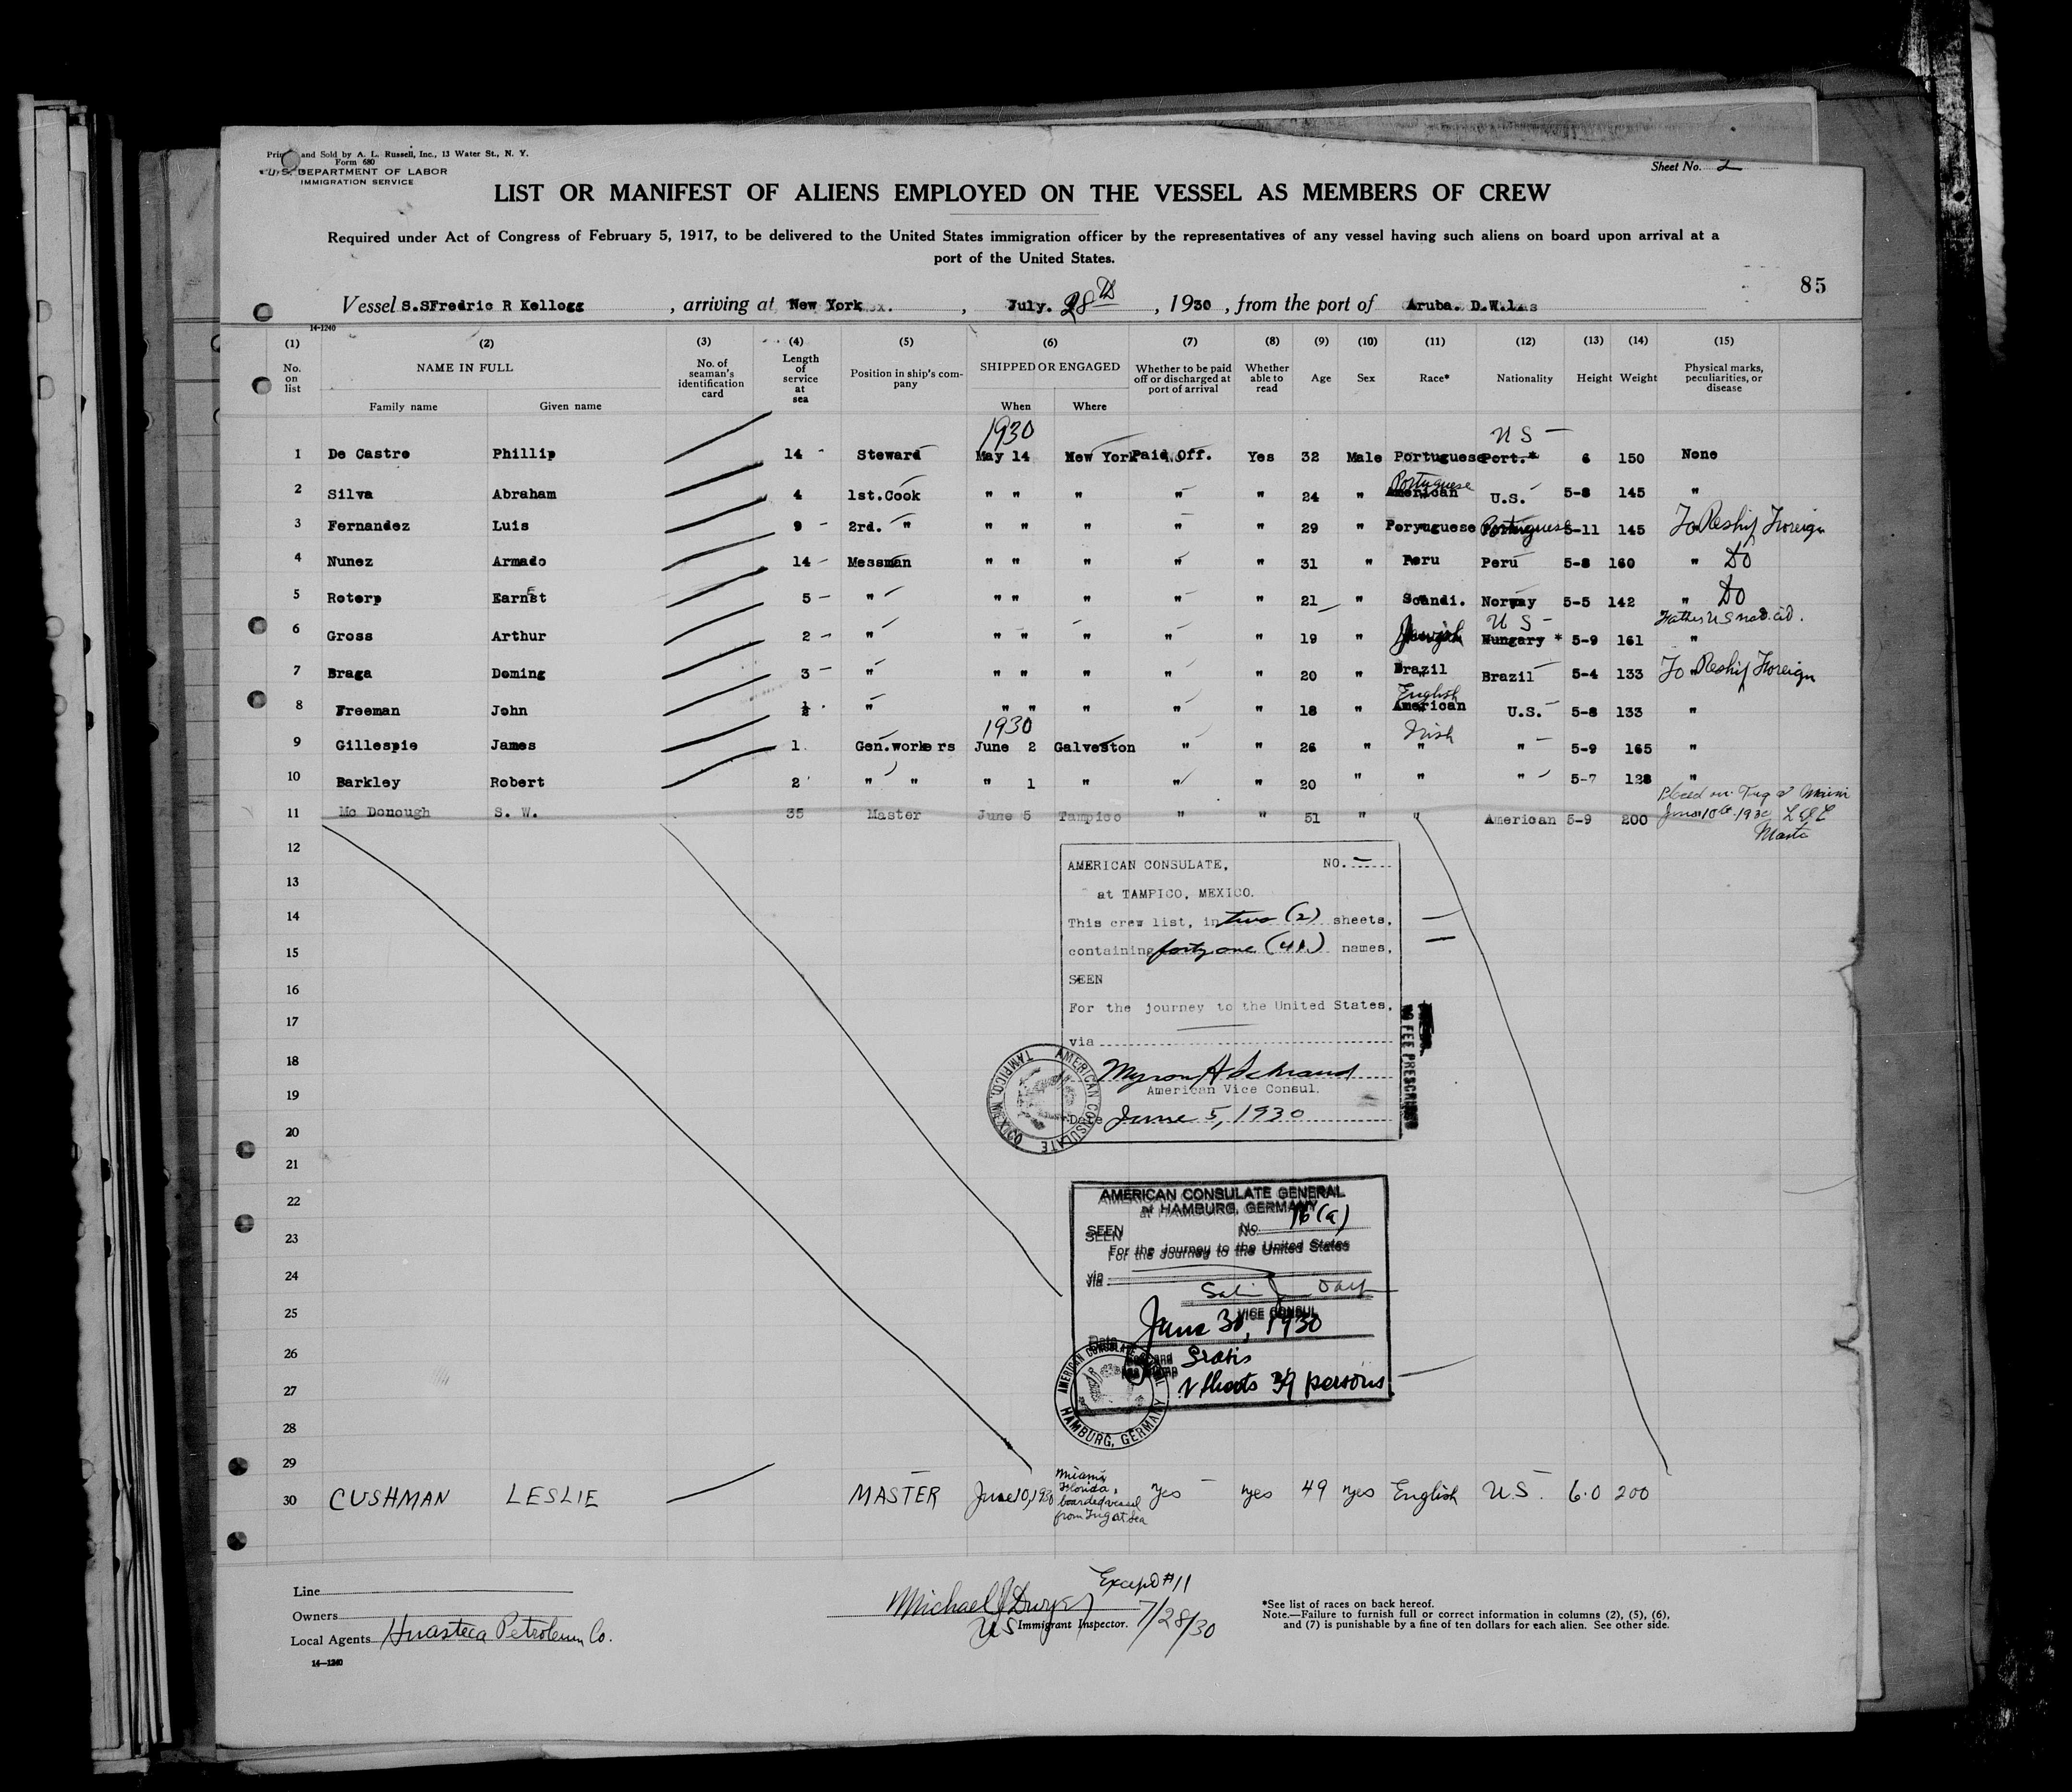 and Sold by A. L. Russell, Inc., 13 Water St., N. Y.
Form 680
U. S. DEPARTMENT OF LABOR
IMMIGRATION SERVICE
Sheet No. 2
LIST OR MANIFEST OF ALIENS EMPLOYED ON THE VESSEL AS MEMBERS OF CREW
Required under Act of Congress of February 5, 1917, to be delivered to the United States immigration officer by the representatives of any vessel having such aliens on board upon arrival at a
port of the United States.
85
Vessel S.SFredric R Kellogg, arriving at New York, July. 28th, 1930, from the port of Aruba. D.W.I.
14-1240
(1) (2) (3) (4) (5) (6) (7) (8) (9) (10) (11) (12) (13) (14) (15)
No. on list NAME IN FULL No. of seaman's identification card Length of service at sea Position in ship's company SHIPPED OR ENGAGED Whether to be paid off or discharged at port of arrival Whether able to read Age Sex Race* Nationality Height Weight Physical marks, peculiarities, or disease
Family name Given name When Where
1930 U S
1 De Castro Phillip 14 Steward May 14 New York Paid Off. Yes 32 Male Portuguese Port.* 6 150 None
Portuguese
2 Silva Abraham 4 1st.Cook " " " " " 24 " American U.S. 5-8 145 "
3 Fernandez Luis 9 2rd. " " " " " " 29 " Poryuguese Portuguese 5-11 145 To Reship Foreign
4 Nunez Armado 14 Messman " " " " " 31 " Peru Peru 5-8 160 " Do
5 Rotorp Earnst 5 " " " " " " 21 " Scandi. Norway 5-5 142 " Do
U S Father US nat. cit.
6 Gross Arthur 2 " " " " " " 19 " Jewish Hungary * 5-9 161 "
7 Braga Doming 3 " " " " " " 20 " Brazil Brazil 5-4 133 To Reship Foreign
English
8 Freeman John ½ " " " " " " 18 " American U.S. 5-8 133 "
1930 Irish
9 Gillespie James 1 Gen.workers June 2 Galveston " " 26 " " " 5-9 165 "
10 Barkley Robert 2 " " " 1 " " " 20 " " " 5-7 128 "
Placed on Tug at Miami
11 Mc Donough S. W. 35 Master June 5 Tampico " " 51 " " American 5-9 200 June 10th 1930
12
AMERICAN CONSULATE, NO. —
13
at TAMPICO, MEXICO.
14
This crew list, in two (2) sheets,
15
containing forty one (41) names,
16
SEEN
17
For the journey to the United States,
via
18
Myron H Schraud
19
American Vice Consul.
Date June 5, 1930
AMERICAN CONSULATE TAMPICO, MEXICO
NO FEE PRESCRIBED
20
21
22
AMERICAN CONSULATE GENERAL
at HAMBURG, GERMANY
SEEN No. 16 (a)
23
For the Journey to the United States
24
via
25
VICE CONSUL
Date June 30, 1930
26
Gratis
27
2 sheets 39 persons
AMERICAN CONSULATE HAMBURG, GERMANY
28
29
30 CUSHMAN LESLIE MASTER June 10, 1930 Miami, Florida, boarded vessel from Tug at Sea yes yes 49 yes English U.S. 6.0 200
Line
Owners
Local Agents Huasteca Petroleum Co.
14—1240
Except #11
Michael J Dwyer
US Immigrant Inspector. 7/28/30
*See list of races on back hereof.
Note.—Failure to furnish full or correct information in columns (2), (5), (6),
and (7) is punishable by a fine of ten dollars for each alien. See other side.